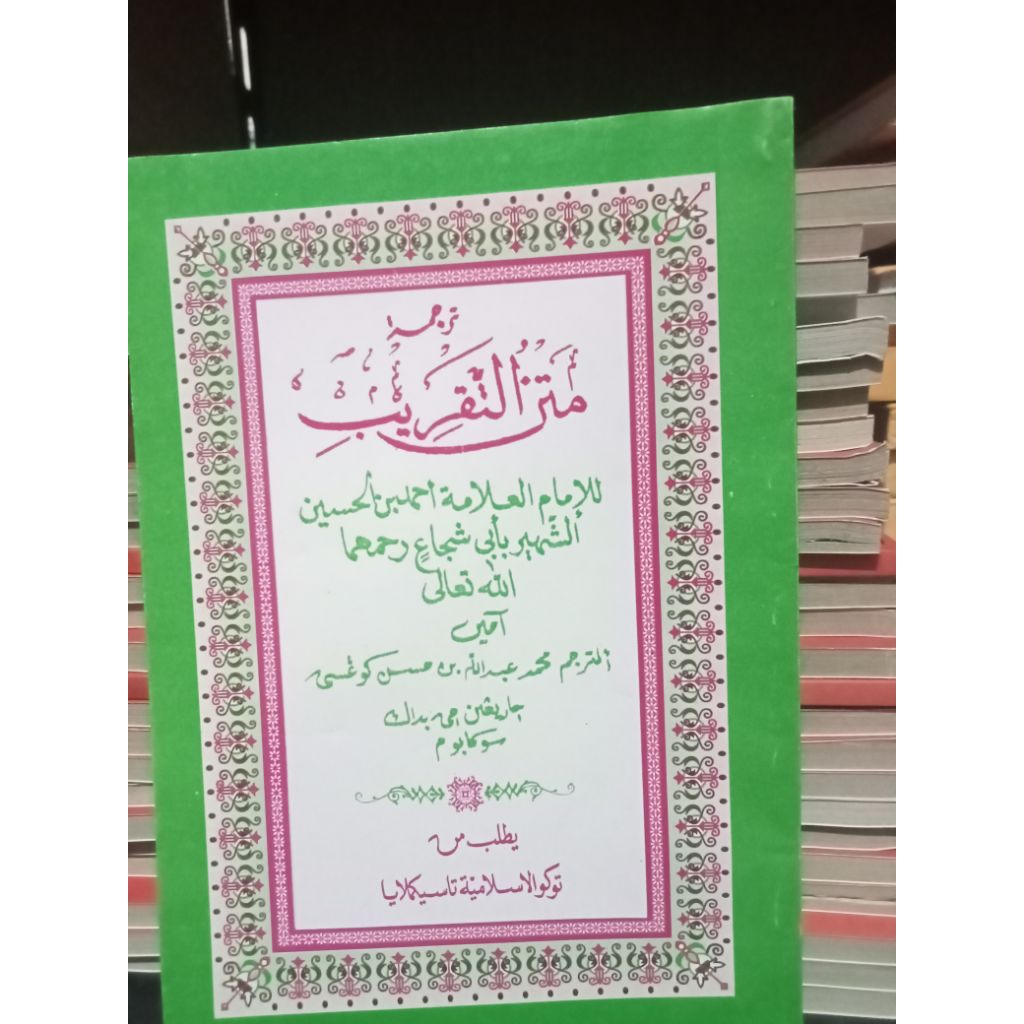 ترجمة
متن التقريب
للإمام العلامة أحمد بن الحسين
الشهير بأبي شجاع رحمهما
الله تعالى
آمين
المترجم محمد عبدالله بن حسن
جاريڠين
سوكابوم
يطلب من
توكو الاسلامية تاسيكملايا